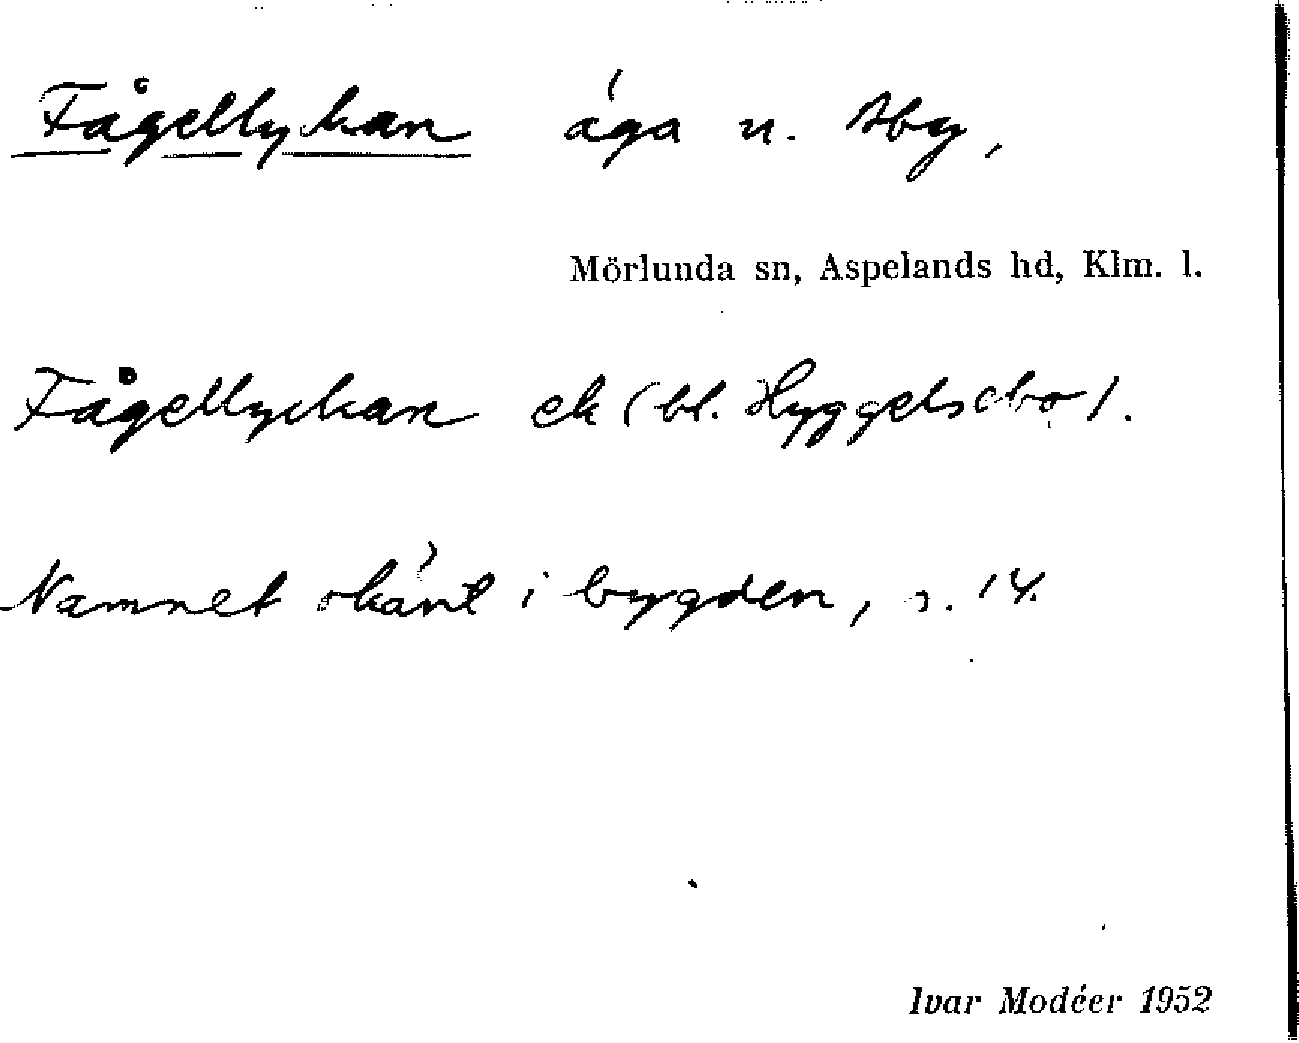 Fågellyckan äga u. Åby,
Mörlunda sn, Aspelands hd, Klm. l.
Fågellyckan ek (bl. Hyggelsebo).
Namnet okänt i bygden, s. 14.
Ivar Modéer 1952